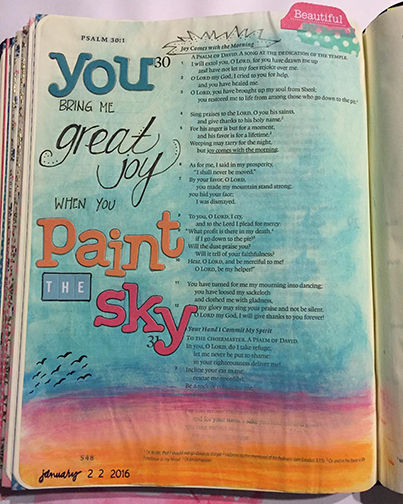 PSALM 30:1
Beautiful
you
BRING ME
great
joy
WHEN YOU
Paint
THE
sky
Joy Comes with the Morning
30 A PSALM OF DAVID. A SONG AT THE DEDICATION OF THE TEMPLE.
I will extol you, O LORD, for you have drawn me up
and have not let my foes rejoice over me.
2 O LORD my God, I cried to you for help,
and you have healed me.
3 O LORD, you have brought up my soul from Sheol;
you restored me to life from among those who go down to the pit.
4 Sing praises to the LORD, O you his saints,
and give thanks to his holy name.
5 For his anger is but for a moment,
and his favor is for a lifetime.
Weeping may tarry for the night,
but joy comes with the morning.
6 As for me, I said in my prosperity,
"I shall never be moved."
7 By your favor, O LORD,
you made my mountain stand strong;
you hid your face;
I was dismayed.
8 To you, O LORD, I cry,
and to the Lord I plead for mercy:
9 "What profit is there in my death,
if I go down to the pit?
Will the dust praise you?
Will it tell of your faithfulness?
10 Hear, O LORD, and be merciful to me!
O LORD, be my helper!"
11 You have turned for me my mourning into dancing;
you have loosed my sackcloth
and clothed me with gladness,
12 my glory may sing your praise and not be silent.
O LORD my God, I will give thanks to you forever!
Your Hand I Commit My Spirit
31 TO THE CHOIRMASTER. A PSALM OF DAVID.
In you, O LORD, do I take refuge;
let me never be put to shame;
in your righteousness deliver me!
2 Incline your ear to me;
rescue me speedily!
Be a rock of
548
january 22 2016